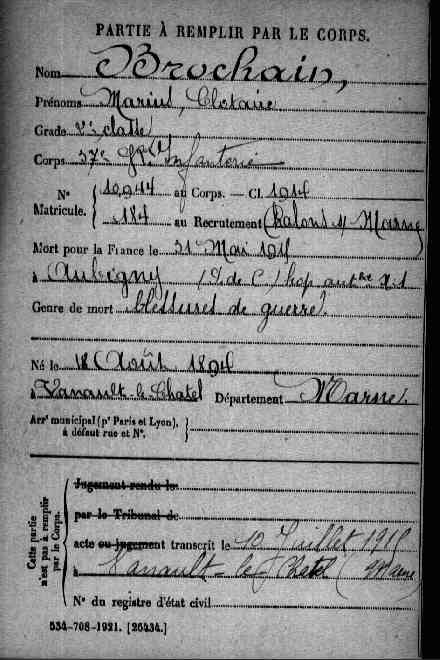 PARTIE À REMPLIR PAR LE CORPS.
Nom Brochain,
Prénoms Marius, Clotaire
Grade 2e classe
Corps 37e Rgt Infanterie
N° Matricule. { 10944 au Corps. — Cl. 1914
184 au Recrutement Chalons s/ Marne
Mort pour la France le 31 Mai 1915
à Aubigny (P. de C.) hop. autre
Genre de mort blessures de guerre.
Né le 18 Août 1894
à Vanault-le-Chatel Département Marne.
Arrt municipal (pr Paris et Lyon), à défaut rue et N°. }
Cette partie n'est pas à remplir par le Corps.
Jugement rendu le
par le Tribunal de
acte ou jugement transcrit le 10 Juillet 1915
à Vanault-le-Chatel (Marne)
N° du registre d'état civil
534-708-1921. [26434.]